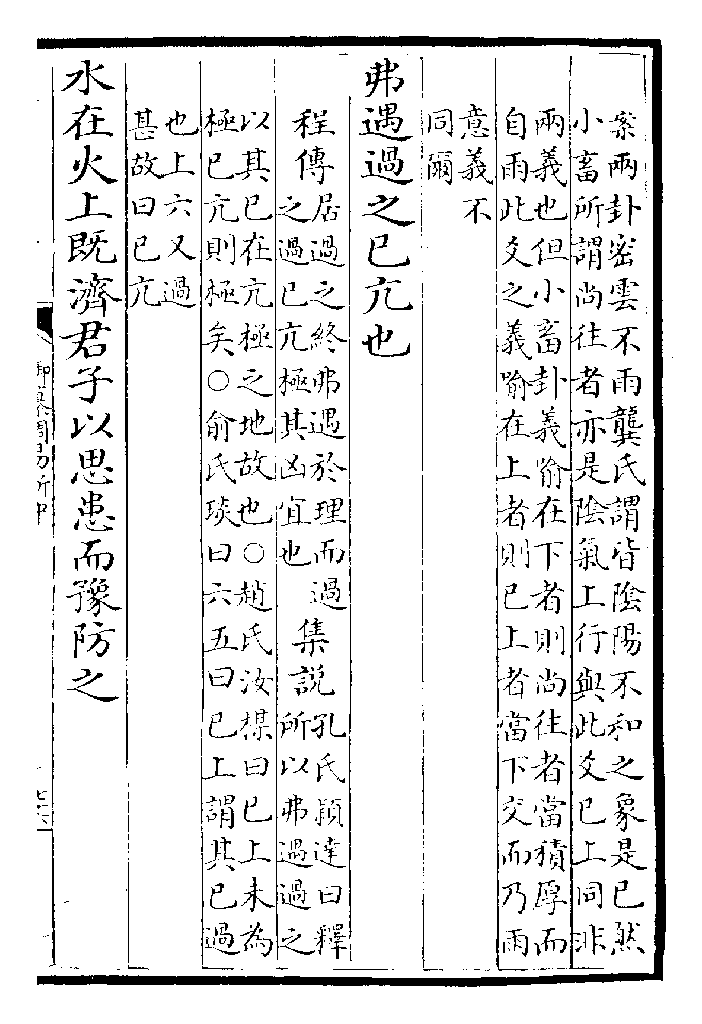 案兩卦密雲不雨龔氏謂皆陰陽不和之象是已然
小畜所謂尚往者亦是陰氣上行與此爻已上同非
兩義也但小畜卦義喻在下者則尚往者當積厚而
自雨此爻之義喻在上者則已上者當下交而乃雨
意義不
同爾
弗遇過之已亢也
程傳
居過之終弗遇於理而過
之過已亢極其凶宜也
集說
孔氏穎達曰釋
所以弗遇過之
以其已在亢極之地故也○趙氏汝楳曰已上未為
極已亢則極矣○俞氏琰曰六五曰已上謂其已過
也上六又過
甚故曰已亢
水在火上既濟君子以思患而豫防之
御纂周易折中